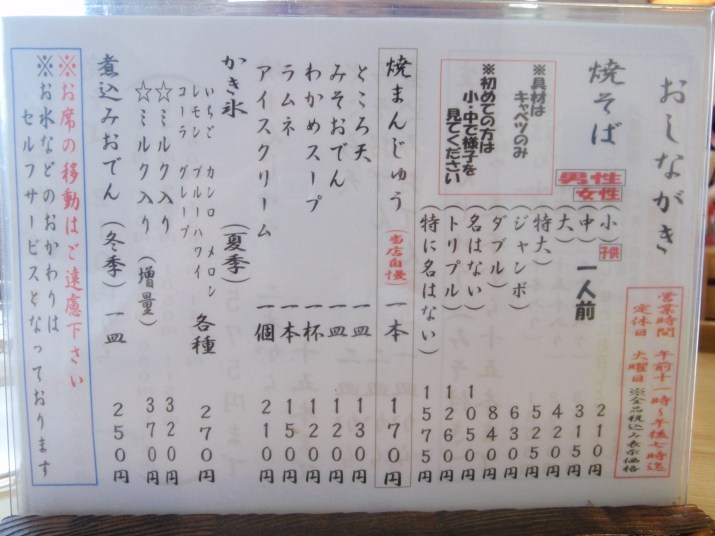 おしながき
営業時間 午前十一時～午後七時迄
定休日 火曜日 ※全品税込み表示価格
焼そば
男性
女性
(小) 子供 210円
(中) 一人前 315円
(大) 420円
(特大) 525円
(ジャンボ) 630円
(ダブル) 840円
(名はない) 1050円
(トリプル) 1260円
(特に名はない) 1575円
※具材は
キャベツのみ
※初めての方は
小・中で様子を
見てください
焼まんじゅう (当店自慢) 一本 170円
ところ天 一皿 130円
みそおでん 一皿 120円
わかめスープ 一杯 120円
ラムネ 一本 150円
アイスクリーム 一個 210円
かき氷 (夏季)
いちご カンロ メロン 各種 270円
レモン ブルーハワイ
コーラ グレープ
☆ミルク入り 320円
☆ミルク入り (増量) 370円
煮込みおでん (冬季) 一皿 250円
※お席の移動はご遠慮下さい
※お水などのおかわりは
セルフサービスとなっております